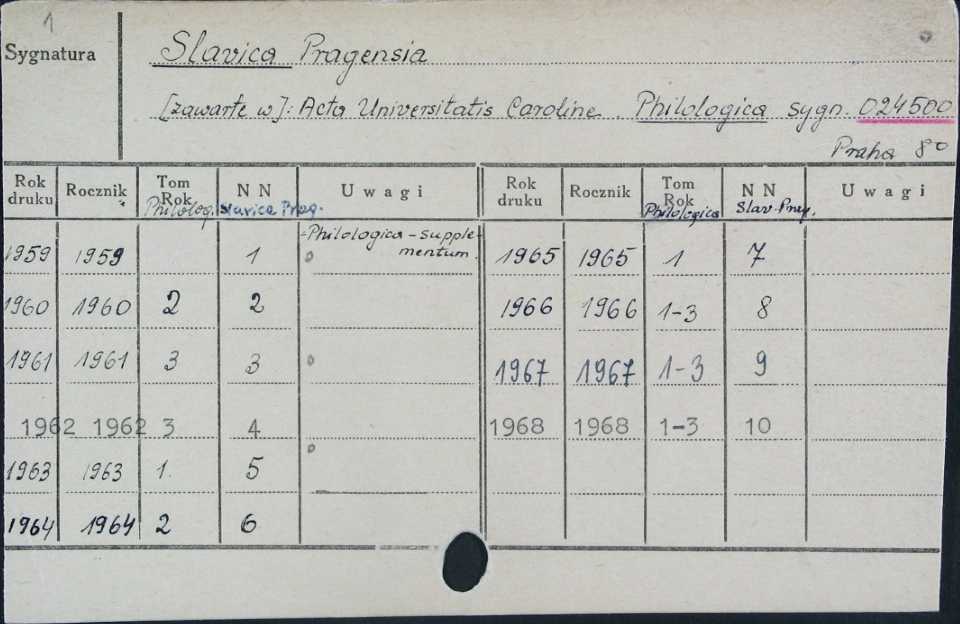 1
Sygnatura
Slavica Pragensia
[zawarte w]: Acta Universitatis Caroline. Philologica sygn. 024500
Praha 8°
Rok druku Rocznik Tom Rok N N Uwagi Rok druku Rocznik Tom Rok N N Uwagi
Philolog. Slavica Prag. Philologica Slav. Prag.
1959 1959 1 Philologica - supplementum. 1965 1965 1 7
1960 1960 2 2 1966 1966 1-3 8
1961 1961 3 3 1967 1967 1-3 9
1962 1962 3 4 1968 1968 1-3 10
1963 1963 1. 5
1964 1964 2 6